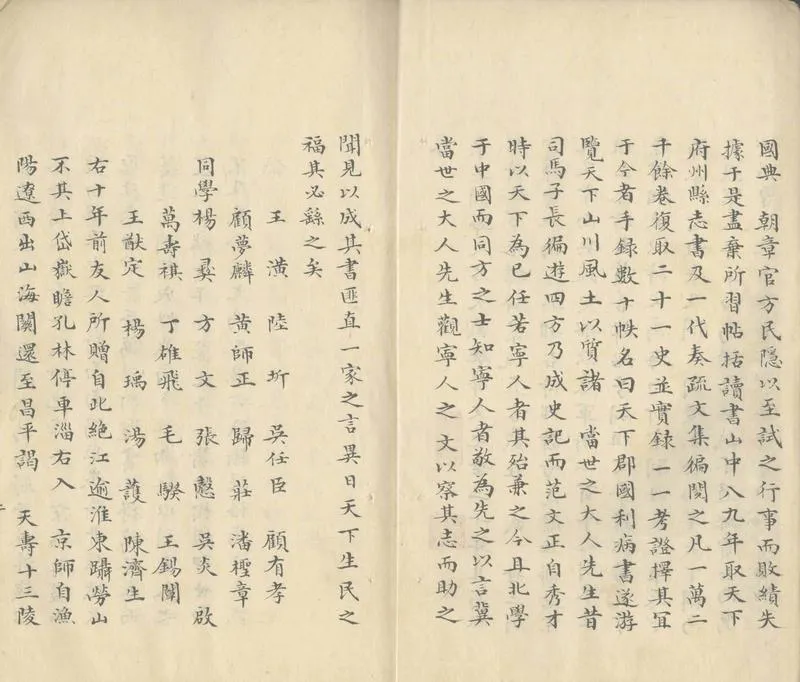 國典 朝章官方民隱以至試之行事而敗績失
據于是盡棄所習帖括讀書山中八九年取天下
府州縣志書及一代奏疏文集徧閱之凡一萬二
千餘卷復取二十一史並實錄一一考證擇其宜
于今者手錄數十帙名曰天下郡國利病書遂游
覽天下山川風土以質諸 當世之大人先生昔
司馬子長徧遊四方乃成史記而范文正自秀才
時以天下為已任若寧人者其殆兼之今且北學
于中國而同方之士知寧人者敬為先之以言冀
當世之大人先生觀寧人之 文以察其志而助之
聞見以成其書匪直一家之言異日天下生民之
福其必繇之矣
王潢 陸圻 吳任臣 顧有孝
顧夢麟 黃師正 歸莊 潘檉章
同學楊彝 方文 張慤 吳炎 啟
萬壽祺 丁雄飛 毛騤 王錫闡
王猷定 楊瑀 湯頀 陳濟生
右十年前友人所贈自此絕江逾淮東躡勞山
不其上岱嶽瞻孔林停車淄右入 京師自漁
陽遼西出山海關還至昌平謁 天壽十三陵